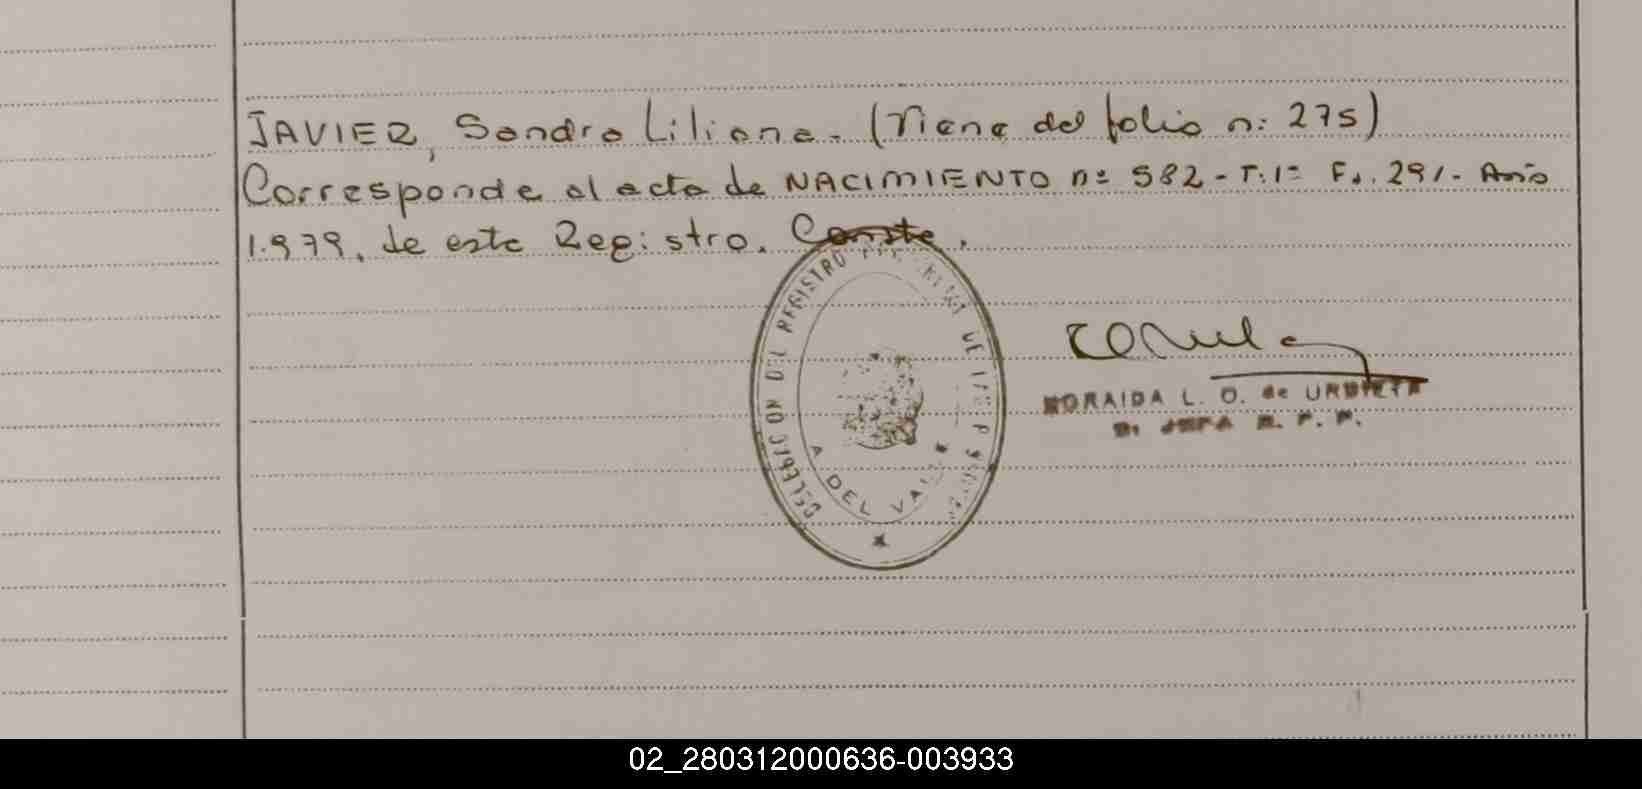 JAVIER, Sandra Liliana.- (Viene del folio n: 275)
Corresponde al acta de NACIMIENTO nº 582 - T: 1º Fº. 291.- Año
1.979, de este Registro. Conste.
DELEGACION DEL REGISTRO
A DEL VALLE
NORAIDA L. O. de URBIETA
JEFA R. P. P.
02_280312000636-003933